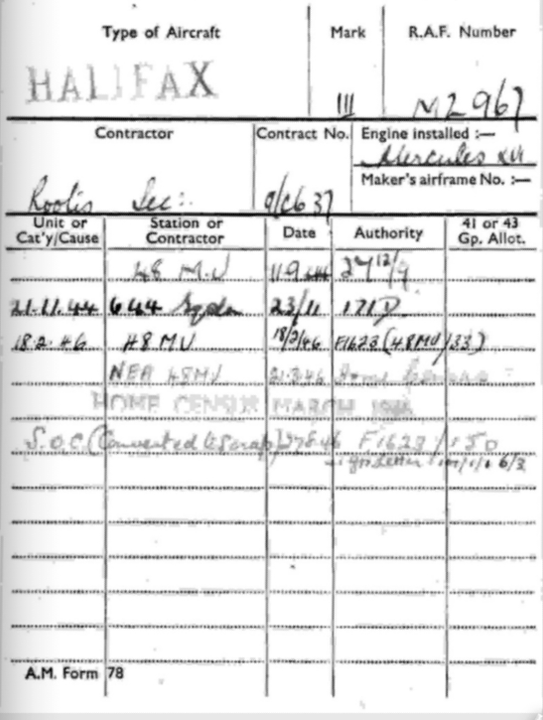 Type of Aircraft Mark R.A.F. Number
HALIFAX III MZ 967
Contractor Contract No. Engine installed :—
Mercules XVI
Maker's airframe No. :—
Rootis Sec: 9/C6 37
Unit or Cat'y/Cause Station or Contractor Date Authority 41 or 43 Gp. Allot.
48 M.U 11 9 44 27 12/9
21.11.44 644 Sqdn 23/11 171D
18.2.46 48 MU 18/2/46 F1623 (48MU/33)
NEA 48MU 21.3.46
HOME CENSUS MARCH 1946
S.O.C. (Converted to Scrap) 27 8 46 F1623/150
letter 6/3
A.M. Form 78